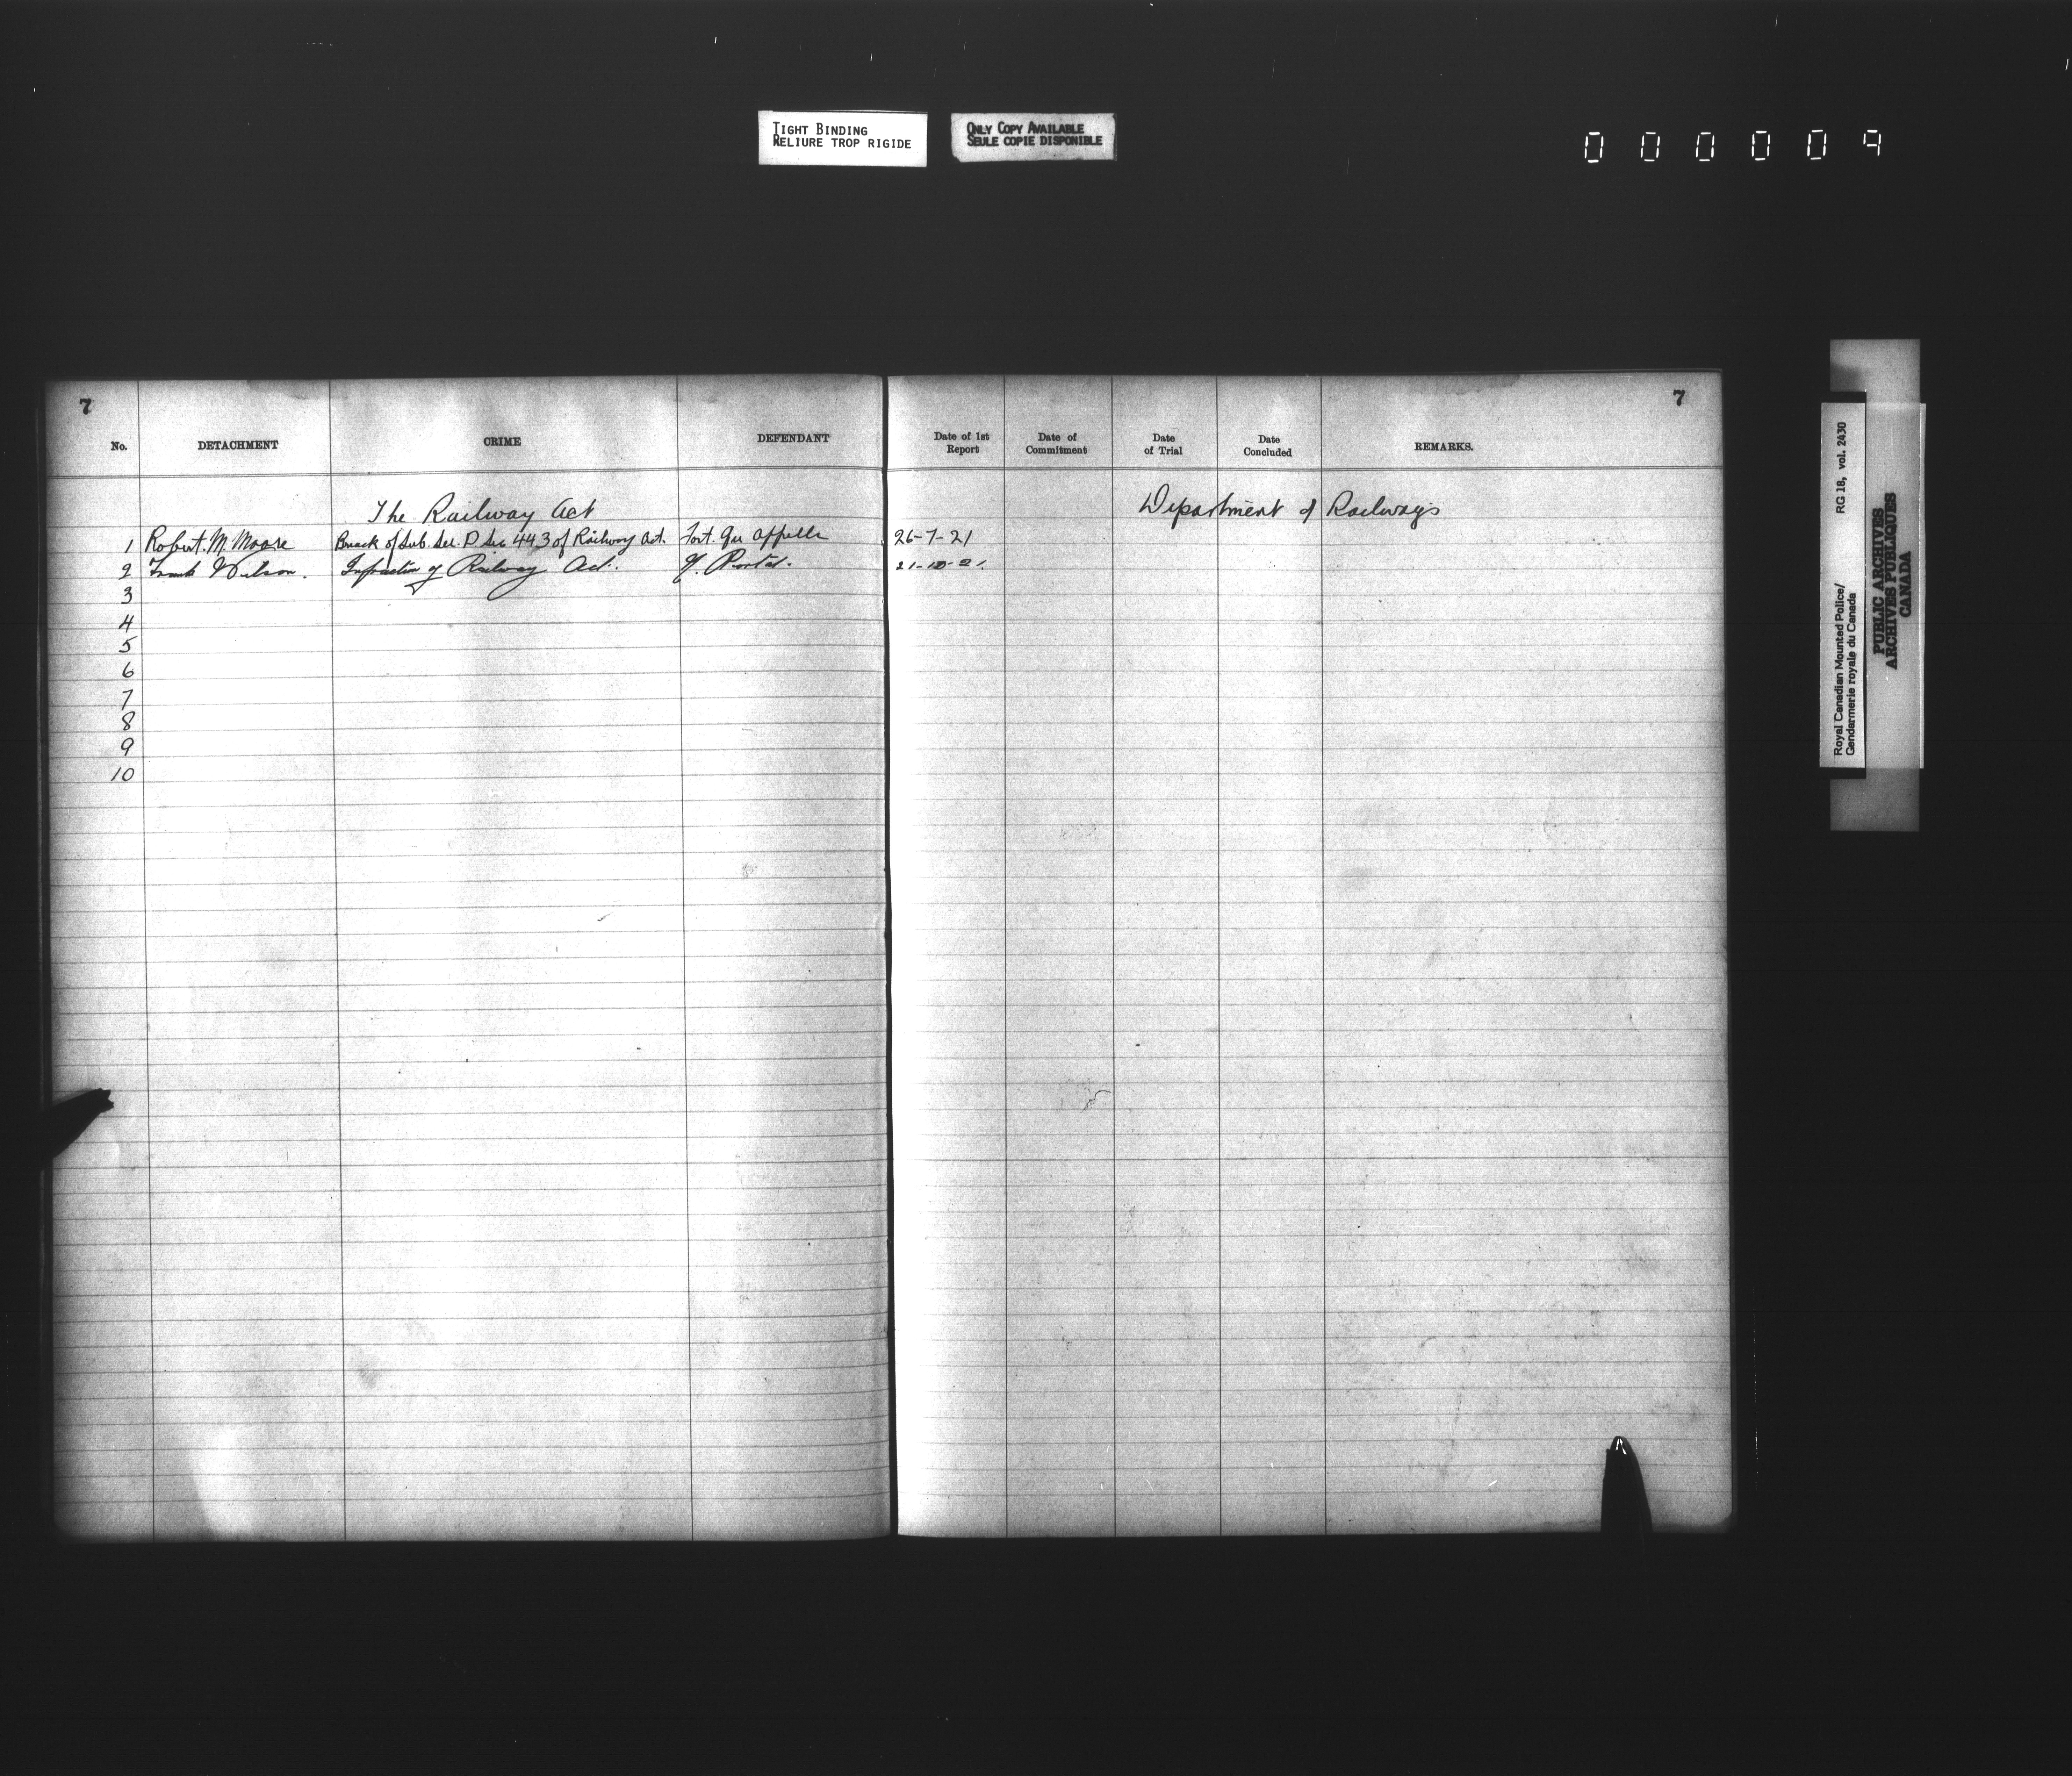 TIGHT BINDING
RELIURE TROP RIGIDE
ONLY COPY AVAILABLE
SEULE COPIE DISPONIBLE
000009
7
7
No. DETACHMENT CRIME DEFENDANT Date of 1st Report Date of Commitment Date of Trial Date Concluded REMARKS.
The Railway Act Department of Railways
1 Robert. M. Moore Breach of Sub. Sec. P. Sec 443 of Railway Act. Fort. Qu Appelle 26-7-21
2 Frank Wilson. Infraction of Railway Act. Portal. 21-10-21.
3
4
5
6
7
8
9
10
Royal Canadian Mounted Police/ RG 18, vol. 2430
Gendarmerie royale du Canada
PUBLIC ARCHIVES
ARCHIVES PUBLIQUES
CANADA